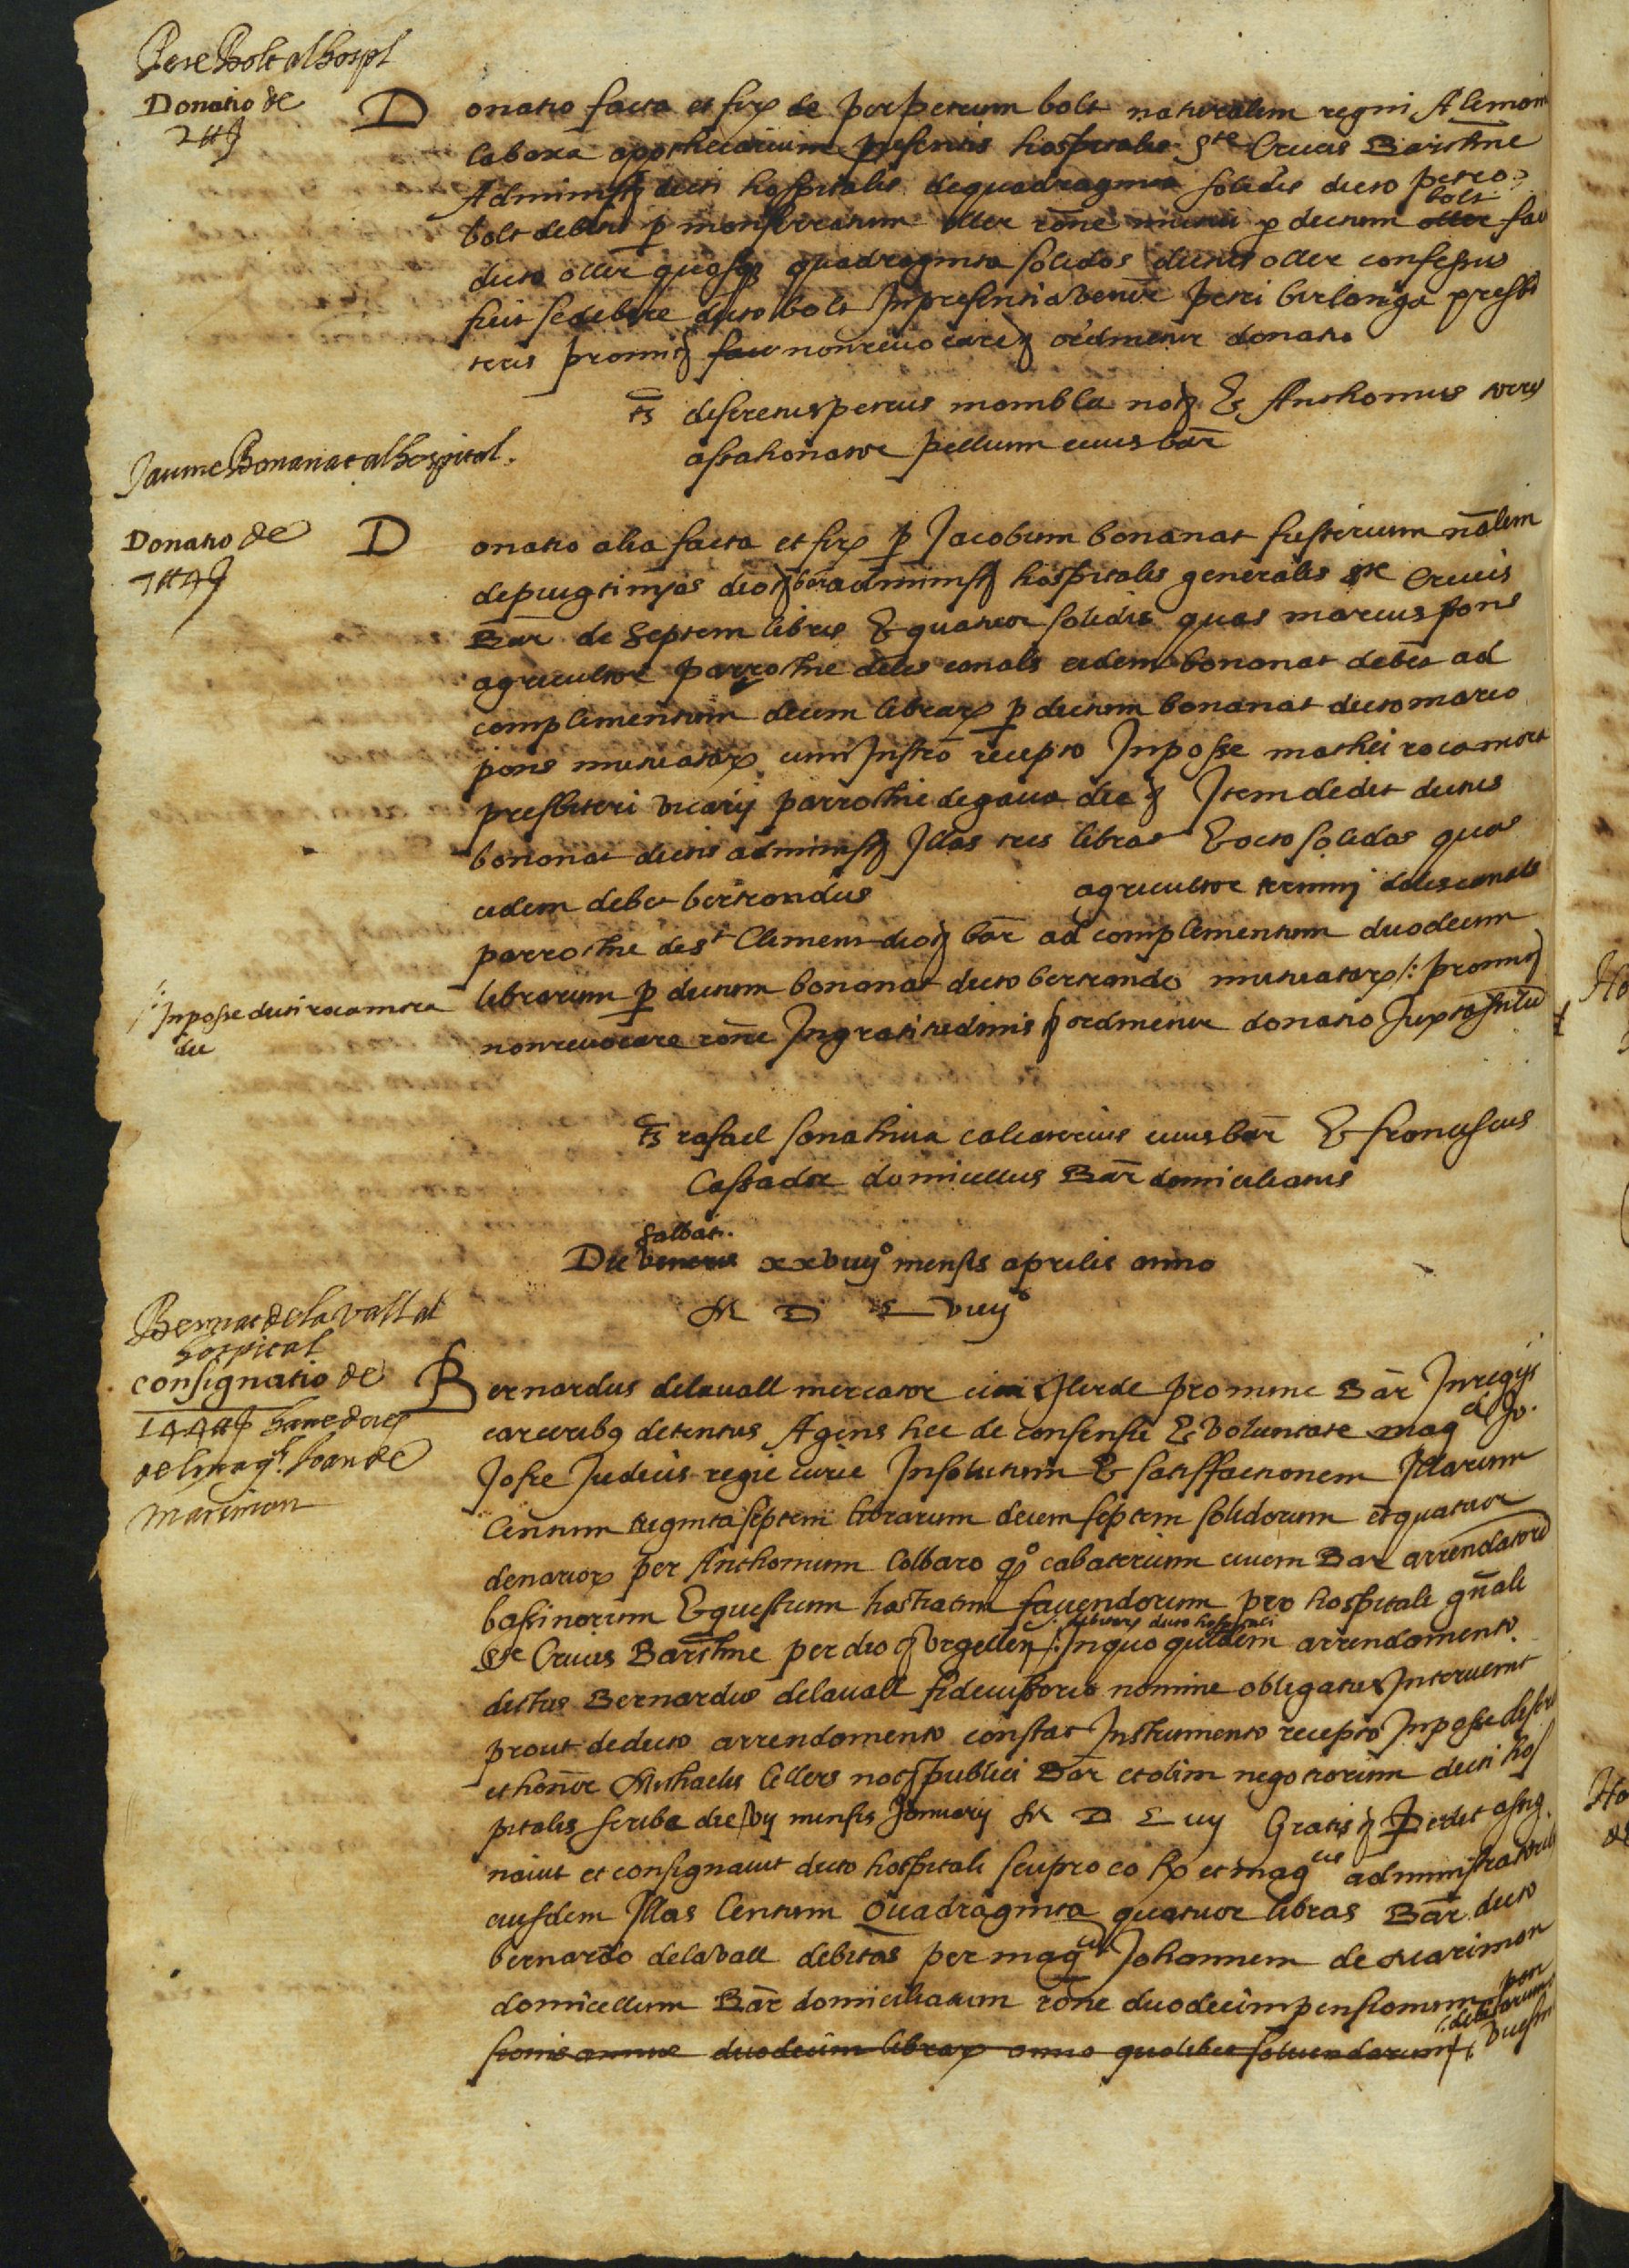 Pere Bolt al hospl
Donatio de
2 ℔ s
Donatio facta et firᵐ de per petrum bolt naturalem regni Alemoni
laboxa appothecarium presentis hospitalis Ste Crucis Barchne
Administ dicti hospitalis de quadraginta solidis dicto petro
bolt debitis p monserratum oller rõne mutui p dictum oller bolt
dicto oller quosqz quadraginta solidos dictus oller confessus
fuit se debere dicto bolt In presentia venlis petri birlanga presbi
teris promitt non revocare ordinetur donatio
ts discretus petrus mombla not & Anthonius
assahonator pellium civis bar
Jaume Bonanat al hospital.
Donatio de
7 ℔ 4 s
Donatio alia facta et firᵐ p Jacobum bonanat fusterium nãlem
de puigtinyos dioc bar administ hospitalis generalis ste Crucis
Bar de septem libris & quatuor solidis quas marcus pons
agricultor parrochie deles canals eidem bonanat debet ad
complementum decem librarᵐ p dictum bonanat dicto marco
pons mutuatarᵐ cum Instrõ recepto In posse mathei rocamora
presbiteri vicarij parrochie de gava die Item dedit dictus
bonanat dictis administ Illas tres libras & octo solidos quas
eidem debet bertrandus agricultor termini deles canals
parrochie de st Clement dioc bar ad complementum duodecim
librarum p dictum bonanat dicto bertrando mutuatarᵐ /: promitt
/: In posse dicti rocamora
die
non revocare rõne Ingratitudinis ordinetur donatio Juxta stilũ
ts rafael sonahuia calcaterius civis bar & franciscus
Cassador domicellus Bar domiciliatus
Die veneris sabbati. xxviijº mensis aprilis anno
M D L viijº
Bernat de la Vall al
hospital
consignatio de
144 ℔
del magh. Joan de
Marimon
Bernardus delavall mercator civis Ilerde pro nunc Bar In regijs
carceribq detentus Agens hec de consensu & voluntate magci Jo.
Jofre Judicis regie curie In solutum & satisffactionem Illarum
Centum triginta septem librarum decem septem solidorum et quatuor
denariorᵐ per Anthonium Colbaro qº cabaterium civem Bar arrendatorẽ
bassinorum & questum hostiatim faciendorum pro hospitali gñali
Ste Crucis Barchne per dioc Urgellen /: In quo quidem arrendamento.
/: debitarᵐ dicto hospitali
dictus Bernardus delavall fideiussorio nomine obligatus Intervenit
prout de dicto arrendamento constat Instrumento recepto In posse discreti
et honor Michaelis Cellers not publici Bar et olim negotiorum dicti hos
pitalis scribe die vij mensis Januarij M D L vij Gratis Dedit assig.
navit et consignavit dicto hospitali seu pro eo et magcis administratoribus
eiusdem Illas Centum Quadraginta quatuor libras Bar dicto
bernardo delavall debitas per magcum Johannem de Marimon
domicellum Bar domiciliatum rõne duodecim pensionum pen
sionis annue duodecim librarᵐ anno quolibet solvendarum
/: debitarum